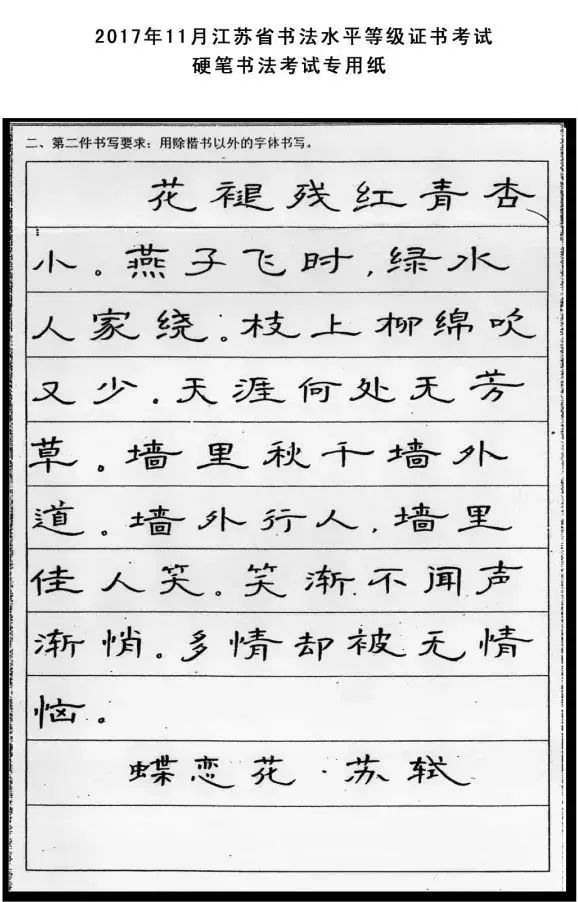 2017年11月江苏省书法水平等级证书考试
硬笔书法考试专用纸
二、第二件书写要求：用除楷书以外的字体书写。
花褪残红青杏
小。燕子飞时，绿水
人家绕。枝上柳绵吹
又少。天涯何处无芳
草。墙里秋千墙外
道。墙外行人，墙里
佳人笑。笑渐不闻声
渐悄。多情却被无情
恼。
蝶恋花·苏轼